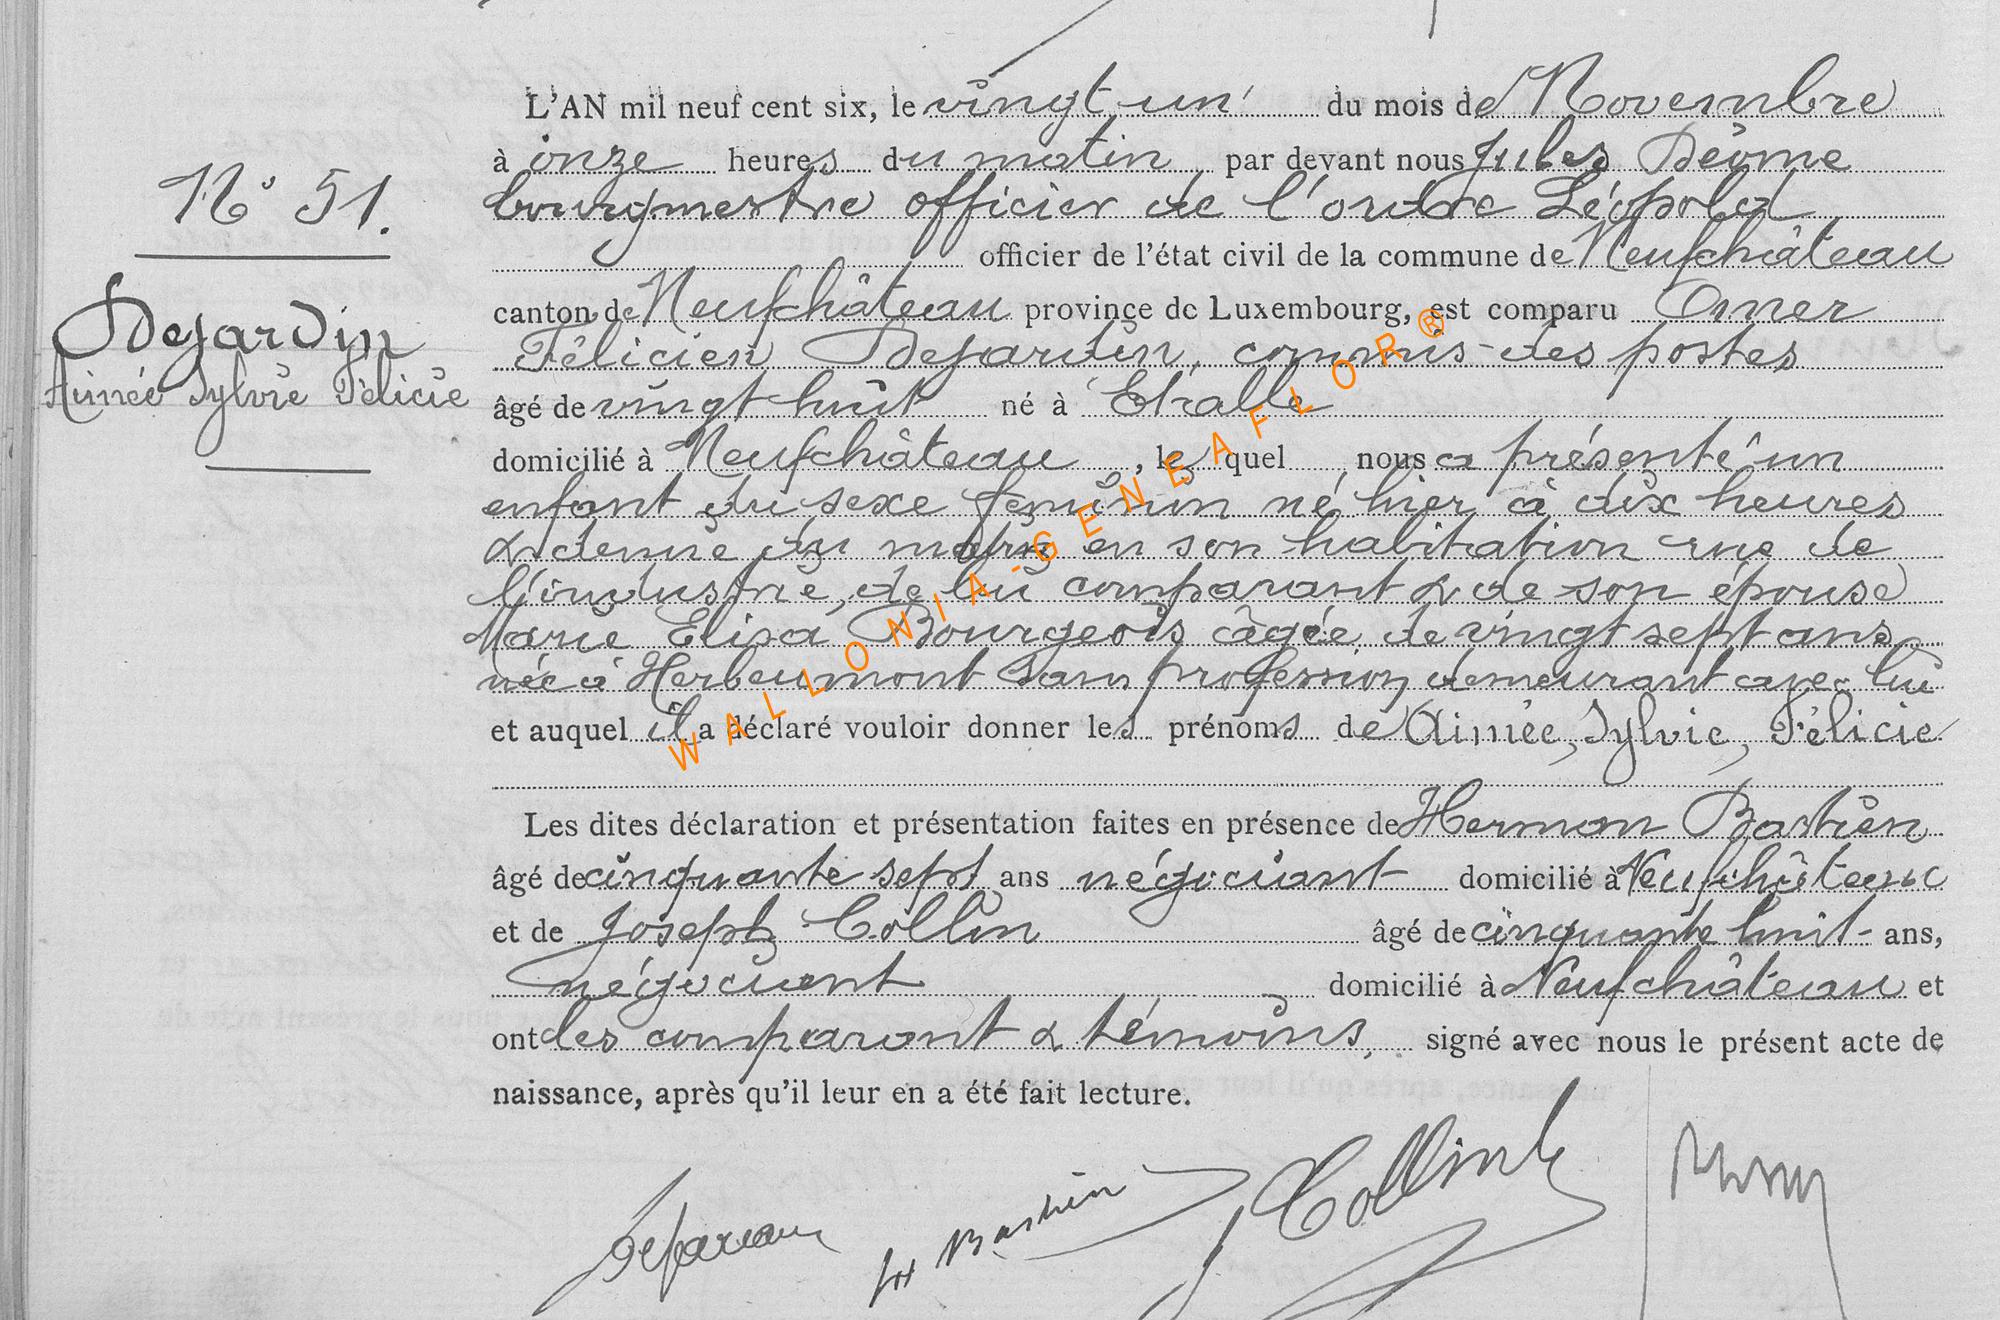 L'AN mil neuf cent six, le vingt un du mois de Novembre
à onze heures du matin par devant nous Jules Déome
bourgmestre officier de l'ordre Léopold
officier de l'état civil de la commune de Neufchâteau
canton de Neufchâteau province de Luxembourg, est comparu Omer
Félicien Dejardin, commis-des postes
âgé de vingt huit né à Etalle
domicilié à Neufchâteau, le quel nous a présenté un
enfant du sexe feminin né hier à dix heures
& demie du matin en son habitation rue de
l'industrie, de lui comparant & de son épouse
Marie Elisa Bourgeois âgée de vingt sept ans
née à Herbeumont sans profession demeurant avec lui
et auquel il a déclaré vouloir donner les prénoms de Aimée, Sylvie, Félicie
Les dites déclaration et présentation faites en présence de Herman Bastien
âgé de cinquante sept ans négociant domicilié à Neufchâteau
et de Joseph Collin âgé de cinquante huit - ans,
négociant domicilié à Neufchâteau et
ont les comparant & témoins, signé avec nous le présent acte de
naissance, après qu'il leur en a été fait lecture.
N° 51.
Dejardin
Aimée Sylvie Félicie
Dejardin Bastien J Collin
WALLONIA-GENEAFLOR®